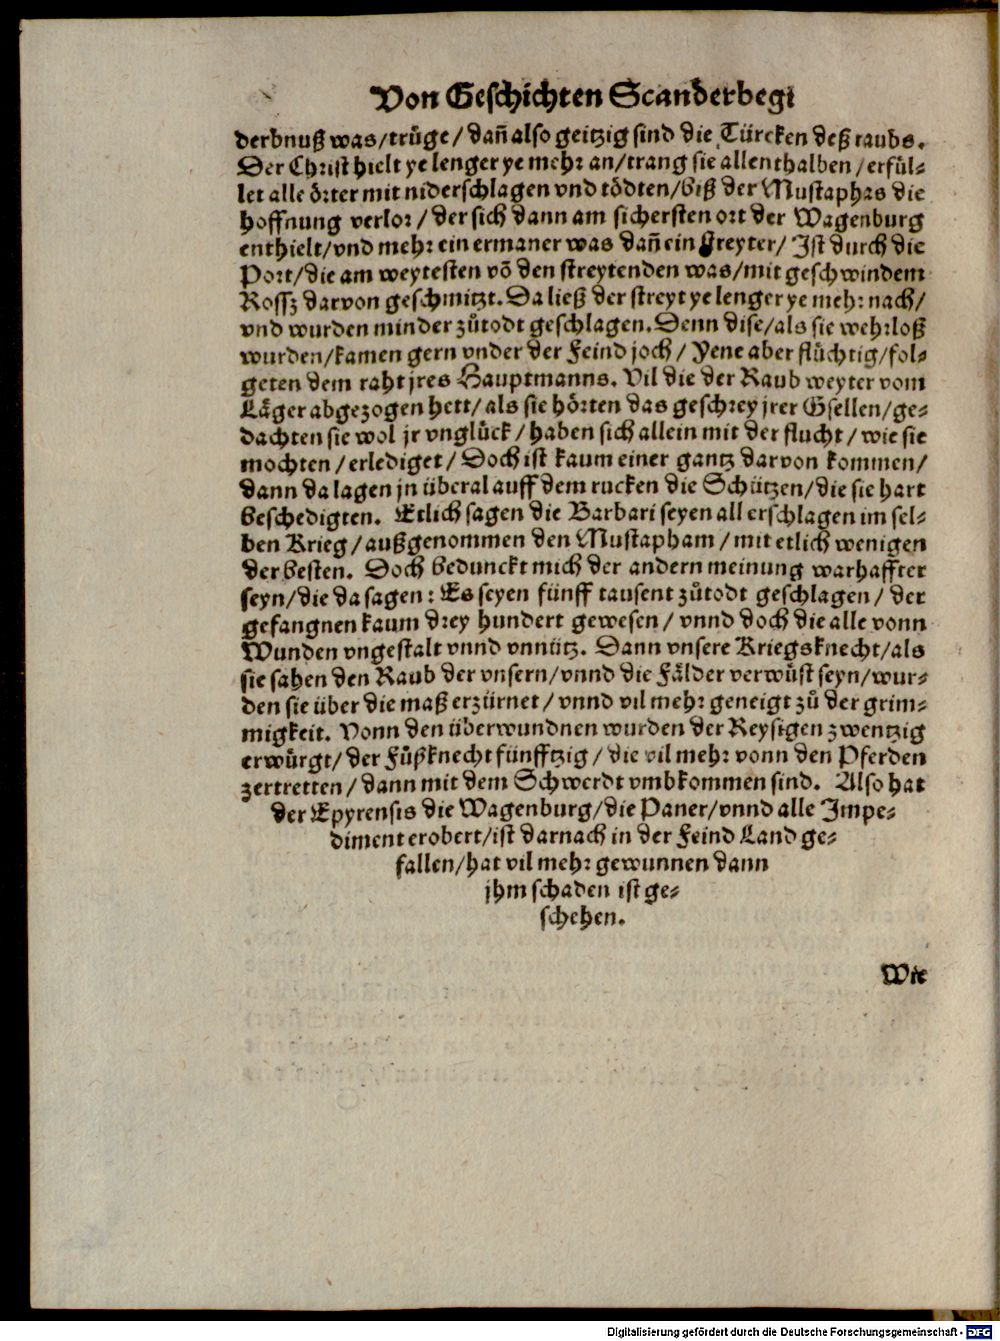 Von Geschichten Scanderbegi
derbnuß was/trüge/dañ also geitzig sind die Türcken deß raubs.
Der Christ hielt ye lenger ye mehr an/trang sie allenthalben/erfül-
let alle örter mit niderschlagen vnd tödten/biß der Mustaphas die
hoffnung verlor/der sich dann am sichersten ort der Wagenburg
enthielt/vnd mehr ein ermaner was dañ ein streyter/Ist durch die
Port/die am weytesten võ den streytenden was/mit geschwindem
Rossz darvon geschmitzt. Da ließ der streyt ye lenger ye mehr nach/
vnd wurden minder zůtodt geschlagen. Denn dise/als sie wehrloß
wurden/kamen gern vnder der Feind joch/Yene aber flüchtig/fol-
geten dem raht jres Hauptmanns. Vil die der Raub weyter vom
Läger abgezogen hett/als sie hörten das geschrey jrer Gsellen/ge-
dachten sie wol jr vnglück/haben sich allein mit der flucht/wie sie
mochten/erlediget/Doch ist kaum einer gantz darvon kommen/
dann da lagen jn überal auff dem rucken die Schützen/die sie hart
beschedigten. Etlich sagen die Barbari seyen all erschlagen im sel-
ben Krieg/außgenommen den Mustapham/mit etlich wenigen
der besten. Doch bedunckt mich der andern meinung warhaffter
seyn/die da sagen: Es seyen fünff tausent zůtodt geschlagen/der
gefangnen kaum drey hundert gewesen/vnnd doch die alle vonn
Wunden vngestalt vnnd vnnütz. Dann vnsere Kriegsknecht/als
sie sahen den Raub der vnsern/vnnd die Fälder verwüst seyn/wur-
den sie über die maß erzürnet/vnnd vil mehr geneigt zů der grim-
migkeit. Vonn den überwundnen wurden der Reysigen zwentzig
erwürgt/der Fůßknecht fünfftzig/die vil mehr vonn den Pferden
zertretten/dann mit dem Schwerdt vmbkommen sind. Also hat
der Epyrensis die Wagenburg/die Paner/vnnd alle Impe-
diment erobert/ist darnach in der Feind Land ge-
fallen/hat vil mehr gewunnen dann
jhm schaden ist ge-
schehen.
Wie
Digitalisierung gefördert durch die Deutsche Forschungsgemeinschaft - DFG